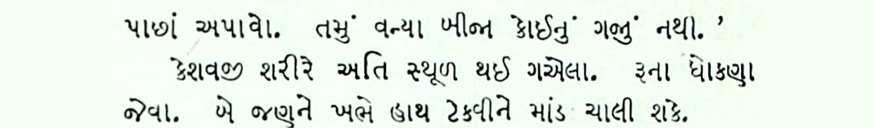 પાછાં અપાવો. તમું વન્યા બીજા કોઈનું ગજું નથી.’
કેશવજી શરીરે અતિ સ્થૂળ થઈ ગએલા. રૂના ધોકણા
જેવા. બે જણને ખભે હાથ ટેકવીને માંડ ચાલી શકે.